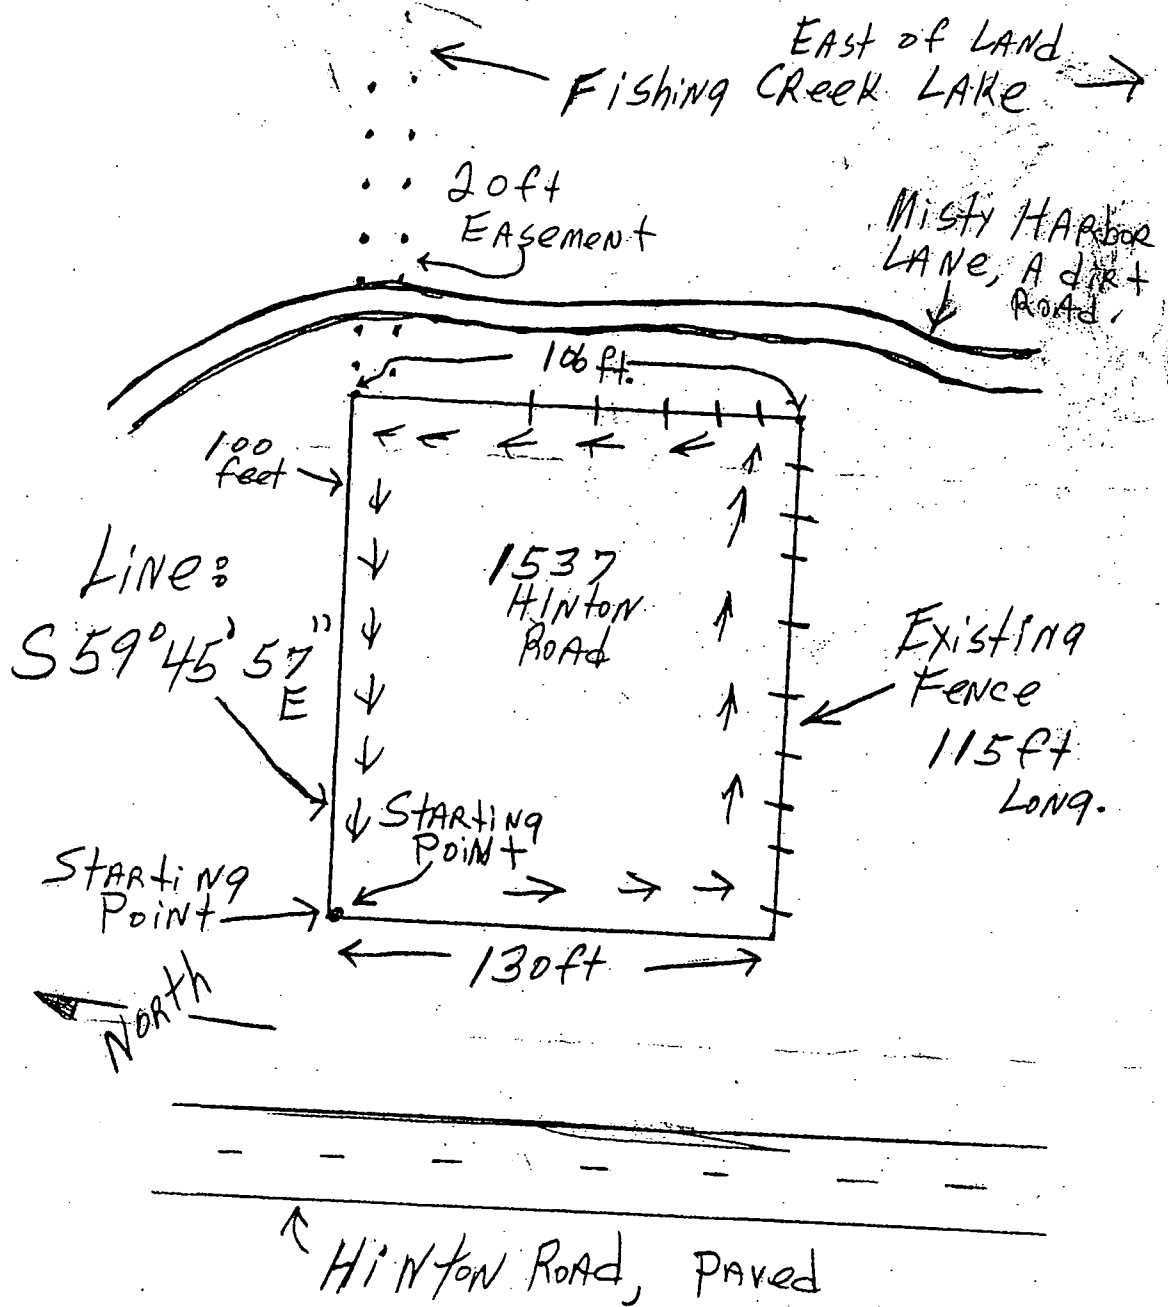 East of Land
Fishing Creek Lake
20ft
Easement
Misty Harbor
Lane, A dirt
Road.
106 ft.
100
feet
Line:
S 59° 45' 57"
E
1537
Hinton
Road
Existing
Fence
115ft
Long.
Starting
Point
Starting
Point
130ft
North
Hinton Road, Paved